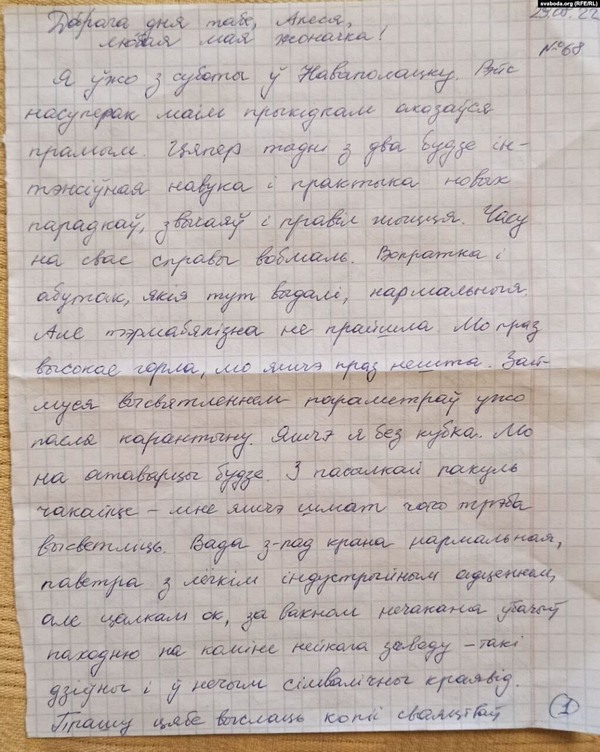 svaboda.org (RFE/RL)
Добрага дня табе, Алеся,
любая мая жоначка!
29.08.22
№68
Я ўжо з суботы ў Наваполацку. Рэйс
насуперак маім прыкідкам аказаўся
прамым. Цяпер тыдні з два будзе ін-
тэнсіўная навука і практыка новых
парадкаў, звычаяў і правіл жыцця. Часу
на свае справы вобмаль. Вопратка і
абутак, якія тут выдалі, нармальныя.
Але тэрмабялізна не прайшла. Мо праз
высокае горла, мо яшчэ праз нешта. Зай-
муся высвятленнем параметраў ужо
пасля каранціну. Яшчэ я без кубка. Мо
на атаварцы будзе. З пасылкай пакуль
чакайце – мне яшчэ шмат чого трэба
высветліць. Вада з-пад крана нармальная,
паветра з лёгкім індустрыйным адценнем,
але цалкам ок, за вакном нечакана ўбачыў
паходню на коміне нейкага заводу – такі
дзіўны і ў нечым сімвалічны краявід.
Прашу цябе выслаць копіі сваяцтваў
1